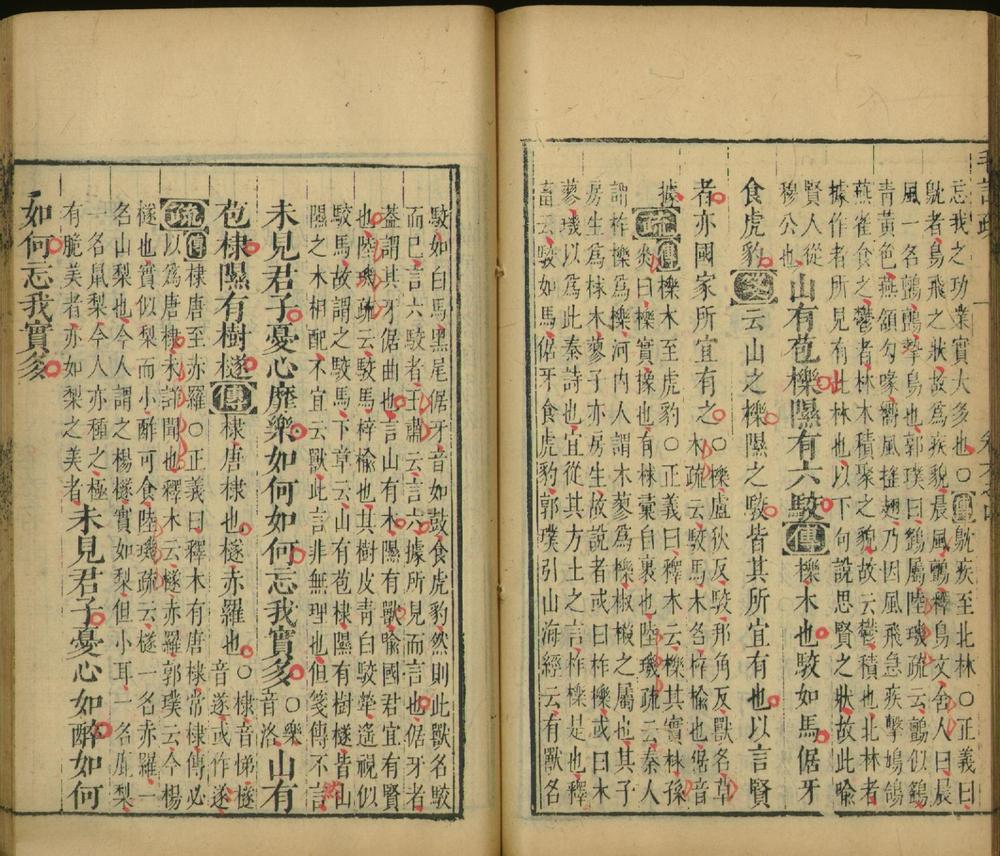 毛詩疏
忘我之功業實大多也○傳鴥疾至北林○正義曰
鴥者鳥飛之狀故爲疾貌晨風鸇釋鳥文舍人曰晨
風一名鸇鸇摯鳥也郭璞曰鷂屬陸璣疏云鸇似鷂
青黃色燕頷勾喙嚮風搖翅乃因風飛急疾擊鳩鴿
燕雀食之鬱者林木積聚之貌故云鬱積也北林者
據作者所見有此林也以下句說思賢之狀故此喻
賢人從
穆公也
山有苞櫟隰有六駮傳櫟木也駮如馬倨牙
食虎豹箋云山之櫟隰之駮皆其所宜有也以言賢
者亦國家所宜有之
○櫟盧狄反駮邦角反獸名草
木疏云駮馬木名梓榆也倨音
據
疏傳櫟木至虎豹○正義曰釋木云櫟其實梂孫
炎曰櫟實橡也有梂彙自裹也陸璣疏云秦人
謂柞櫟爲櫟河內人謂木蓼爲櫟椒榝之屬也其子
房生爲梂木蓼子亦房生故說者或曰柞櫟或曰木
蓼璣以爲此秦詩也宜從其方土之言柞櫟是也釋
畜云駮如馬倨牙食虎豹郭璞引山海經云有獸名
駮如白馬黑尾倨牙音如鼓食虎豹然則此獸名駮
而已言六駮者王肅云言六據所見而言也倨牙者
蓋謂其牙倨曲也言山有木隰有獸喻國君宜有賢
也陸璣疏云駮馬梓榆也其樹皮青白駮犖遥視似
駮馬故謂之駮馬下章云山有苞棣隰有樹檖皆山
隰之木相配不宜云獸此言非無理也但箋傳不言
然
未見君子憂心靡樂如何如何忘我實多
○樂
音洛
山有
苞棣隰有樹檖傳棣唐棣也檖赤羅也
○棣音悌檖
音遂或作遂
疏傳棣唐至亦羅○正義曰釋木有唐棣常棣傳必
以爲唐棣未詳聞也釋木云檖赤羅郭璞云今楊
檖也實似梨而小酢可食陸璣疏云檖一名赤羅一
名山梨也今人謂之楊檖實如梨但小耳一名鹿梨
一名鼠梨今人亦種之極
有脆美者亦如梨之美者
未見君子憂心如醉如何
如何忘我實多